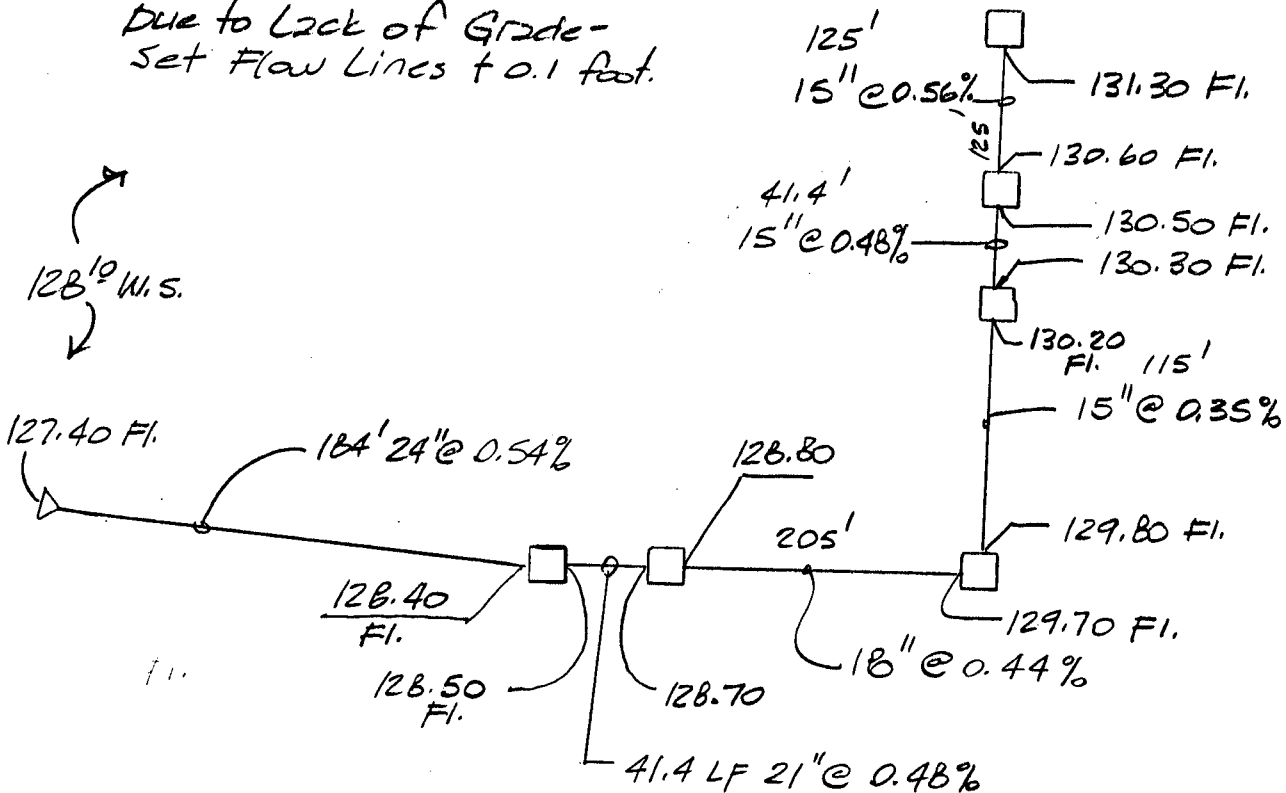 Due to Lack of Grade-
Set Flow Lines ± 0.1 foot.
125'
15" @ 0.56%
125
131.30 Fl.
130.60 Fl.
41.4'
15" @ 0.48%
130.50 Fl.
130.30 Fl.
128.10 W.S.
130.20
Fl.
115'
15" @ 0.35%
127.40 Fl.
184' 24" @ 0.54%
128.80
205'
129.80 Fl.
128.40
Fl.
129.70 Fl.
18" @ 0.44%
128.50
Fl.
128.70
41.4 LF 21" @ 0.48%